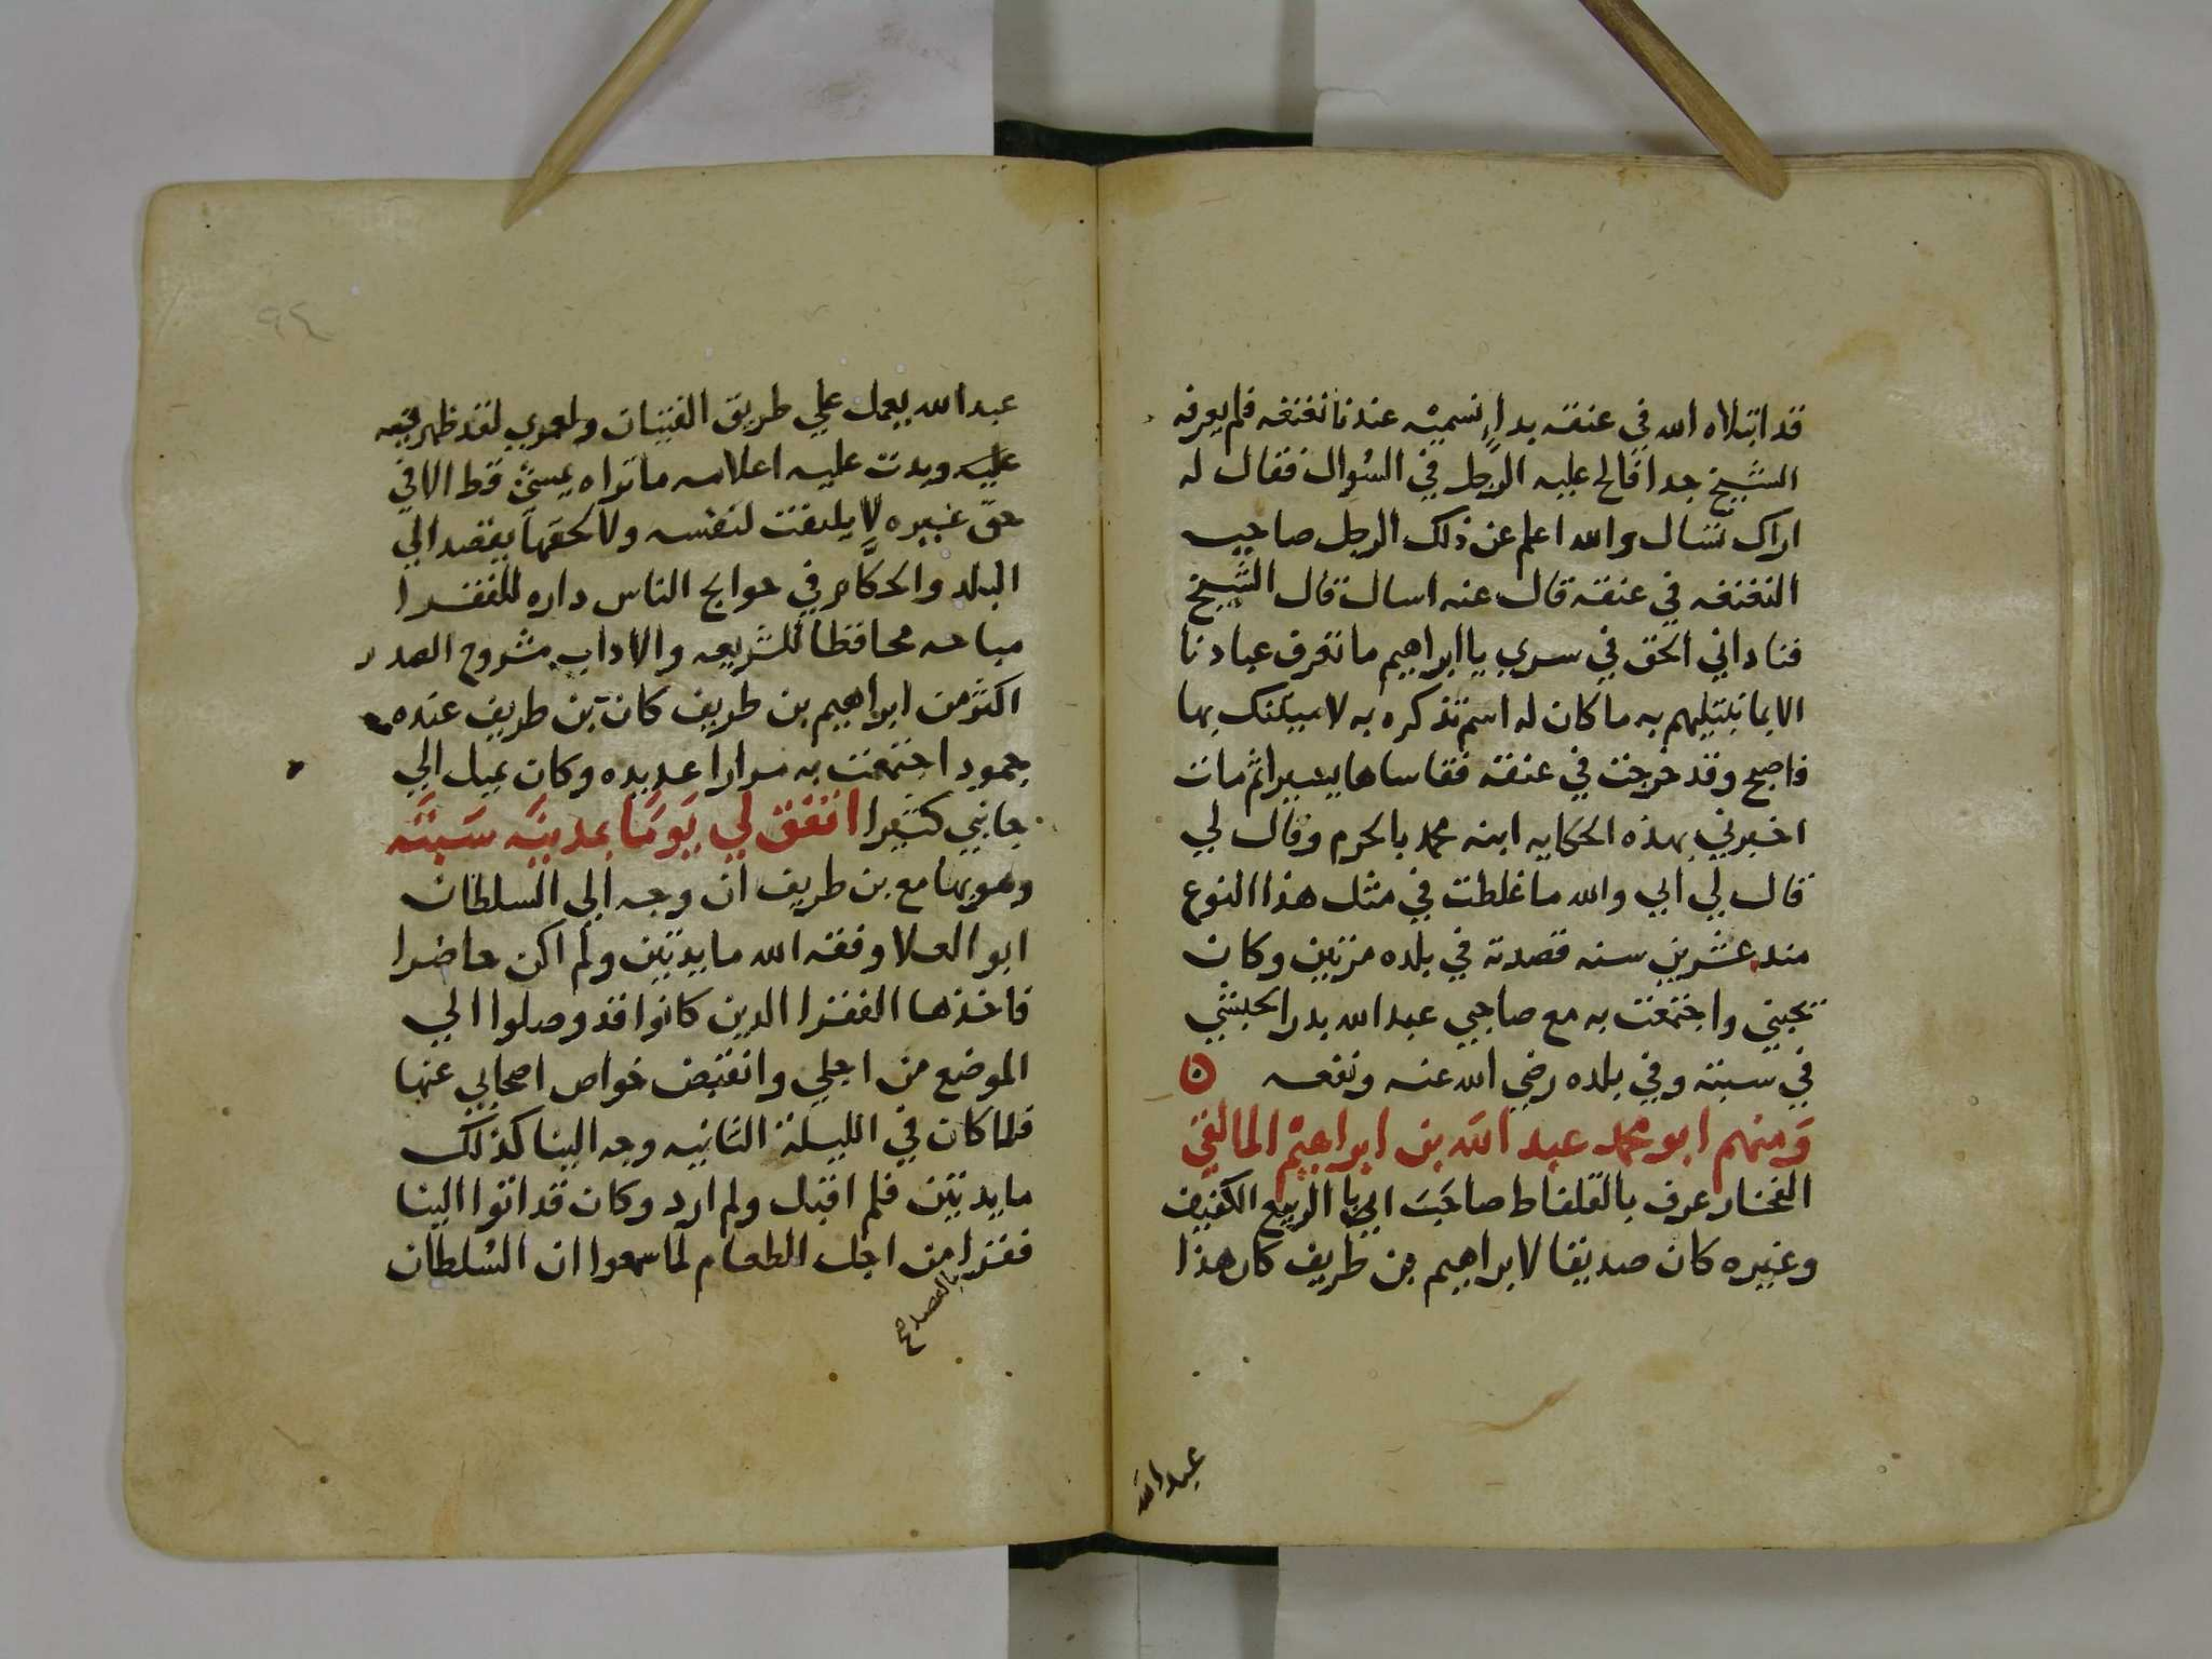 قد ابتلاه الله في عنقه بداء نسميه عندنا نغنغه فلم يعرفه
الشيخ جدا فالح عليه الرجل في السؤال فقال له
اراك تسال والله اعلم عن ذلك الرجل صاحب
النغنغه في عنقه قال عنه اسال قال الشيخ
فناداني الحق في سري يا ابراهيم ما تعرف عبادنا
الا بما نبتليهم به ما كان له اسم تذكره به لاميتنك بها
فاصبح وقد خرجت في عنقه فقاساها يسيرا ثم مات
اخبرني بهذه الحكايه ابنه محمد بالحرم وقال لي
قال لي ابي والله ما غلطت في مثل هذا النوع
منذ عشرين سنه قصدته في بلده مرتين وكان
يحبني واجتمعت به مع صاحبي عبد الله بدر الحبشي
في سبته وفي بلده رضي الله عنه ونفعه
ومنهم ابو محمد عبد الله بن ابراهيم المالقي
الفخار عرف بالقلفاط صاحب ابي الربيع الكفيف
وغيره كان صديقا لابراهيم بن طريف كان هذا
عبد الله
٩٤
عبد الله يعمل علي طريق الفتيان ولعمري لقد ظهر فيه
عليه وبدت عليه اعلامه ما تراه يمشي قط الا في
حق غيره لا يلتفت لنفسه ولا لحقها يقصد الي
البلد والحكام في حوايج الناس داره للفقرا
مباحه محافظا للشريعه والاداب مشروح الصدر
اكثر من ابراهيم بن طريف كان بن طريف عنده
جمود اجتمعت به مرارا عديده وكان يميل الي
جانبي كثيرا اتفق لي يوما بمدينه سبته
وهو بها مع بن طريف ان وجه الي السلطان
ابو العلا وفقه الله مايدتين ولم اكن حاضرا
فاخذها الفقرا الذين كانوا قد وصلوا الي
الموضع من اجلي وانقبض خواص اصحابي عنها
فلما كان في الليلة الثانيه وجه الينا كذلك
مايدتين فلم اقبل ولم ارد وكان قد اتوا الينا
فقرا من اجل الطعام لما سمعوا ان السلطان
بالقصد صح